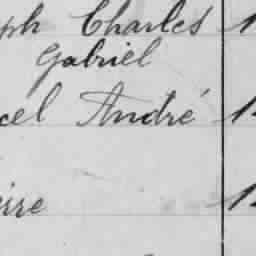 ph Charles 1
Gabriel
cel André 1
irre 1